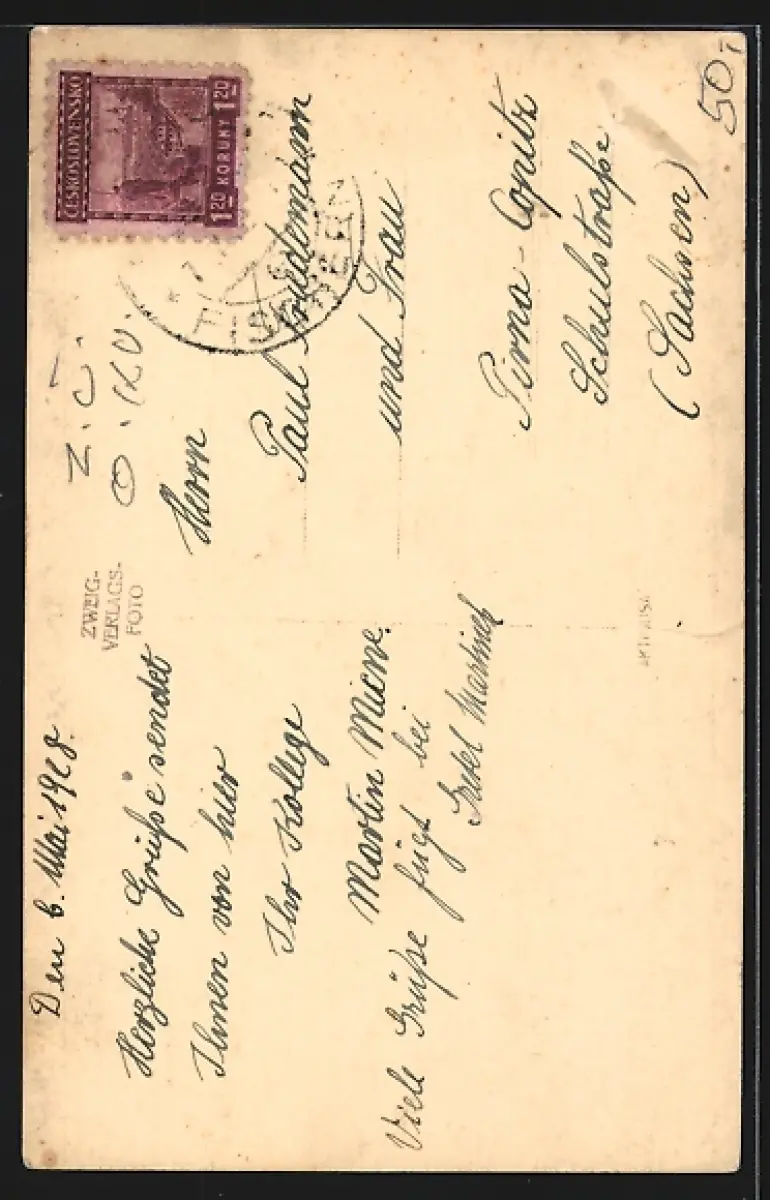 Den 6. Mai 1928.
Herzliche Grüße sendet
Ihnen von hier
Ihr Kollege
Martin
Viele Grüße fügt bei
Gretl
ZWEIG-
VERLAGS-
FOTO
Z.Č.
ČESKOSLOVENSKO
1 20 KORUNY 1 20
Herrn
Paul Friedemann
und Frau
Pirna-Copitz
Schulstraße
(Sachsen)
50,-